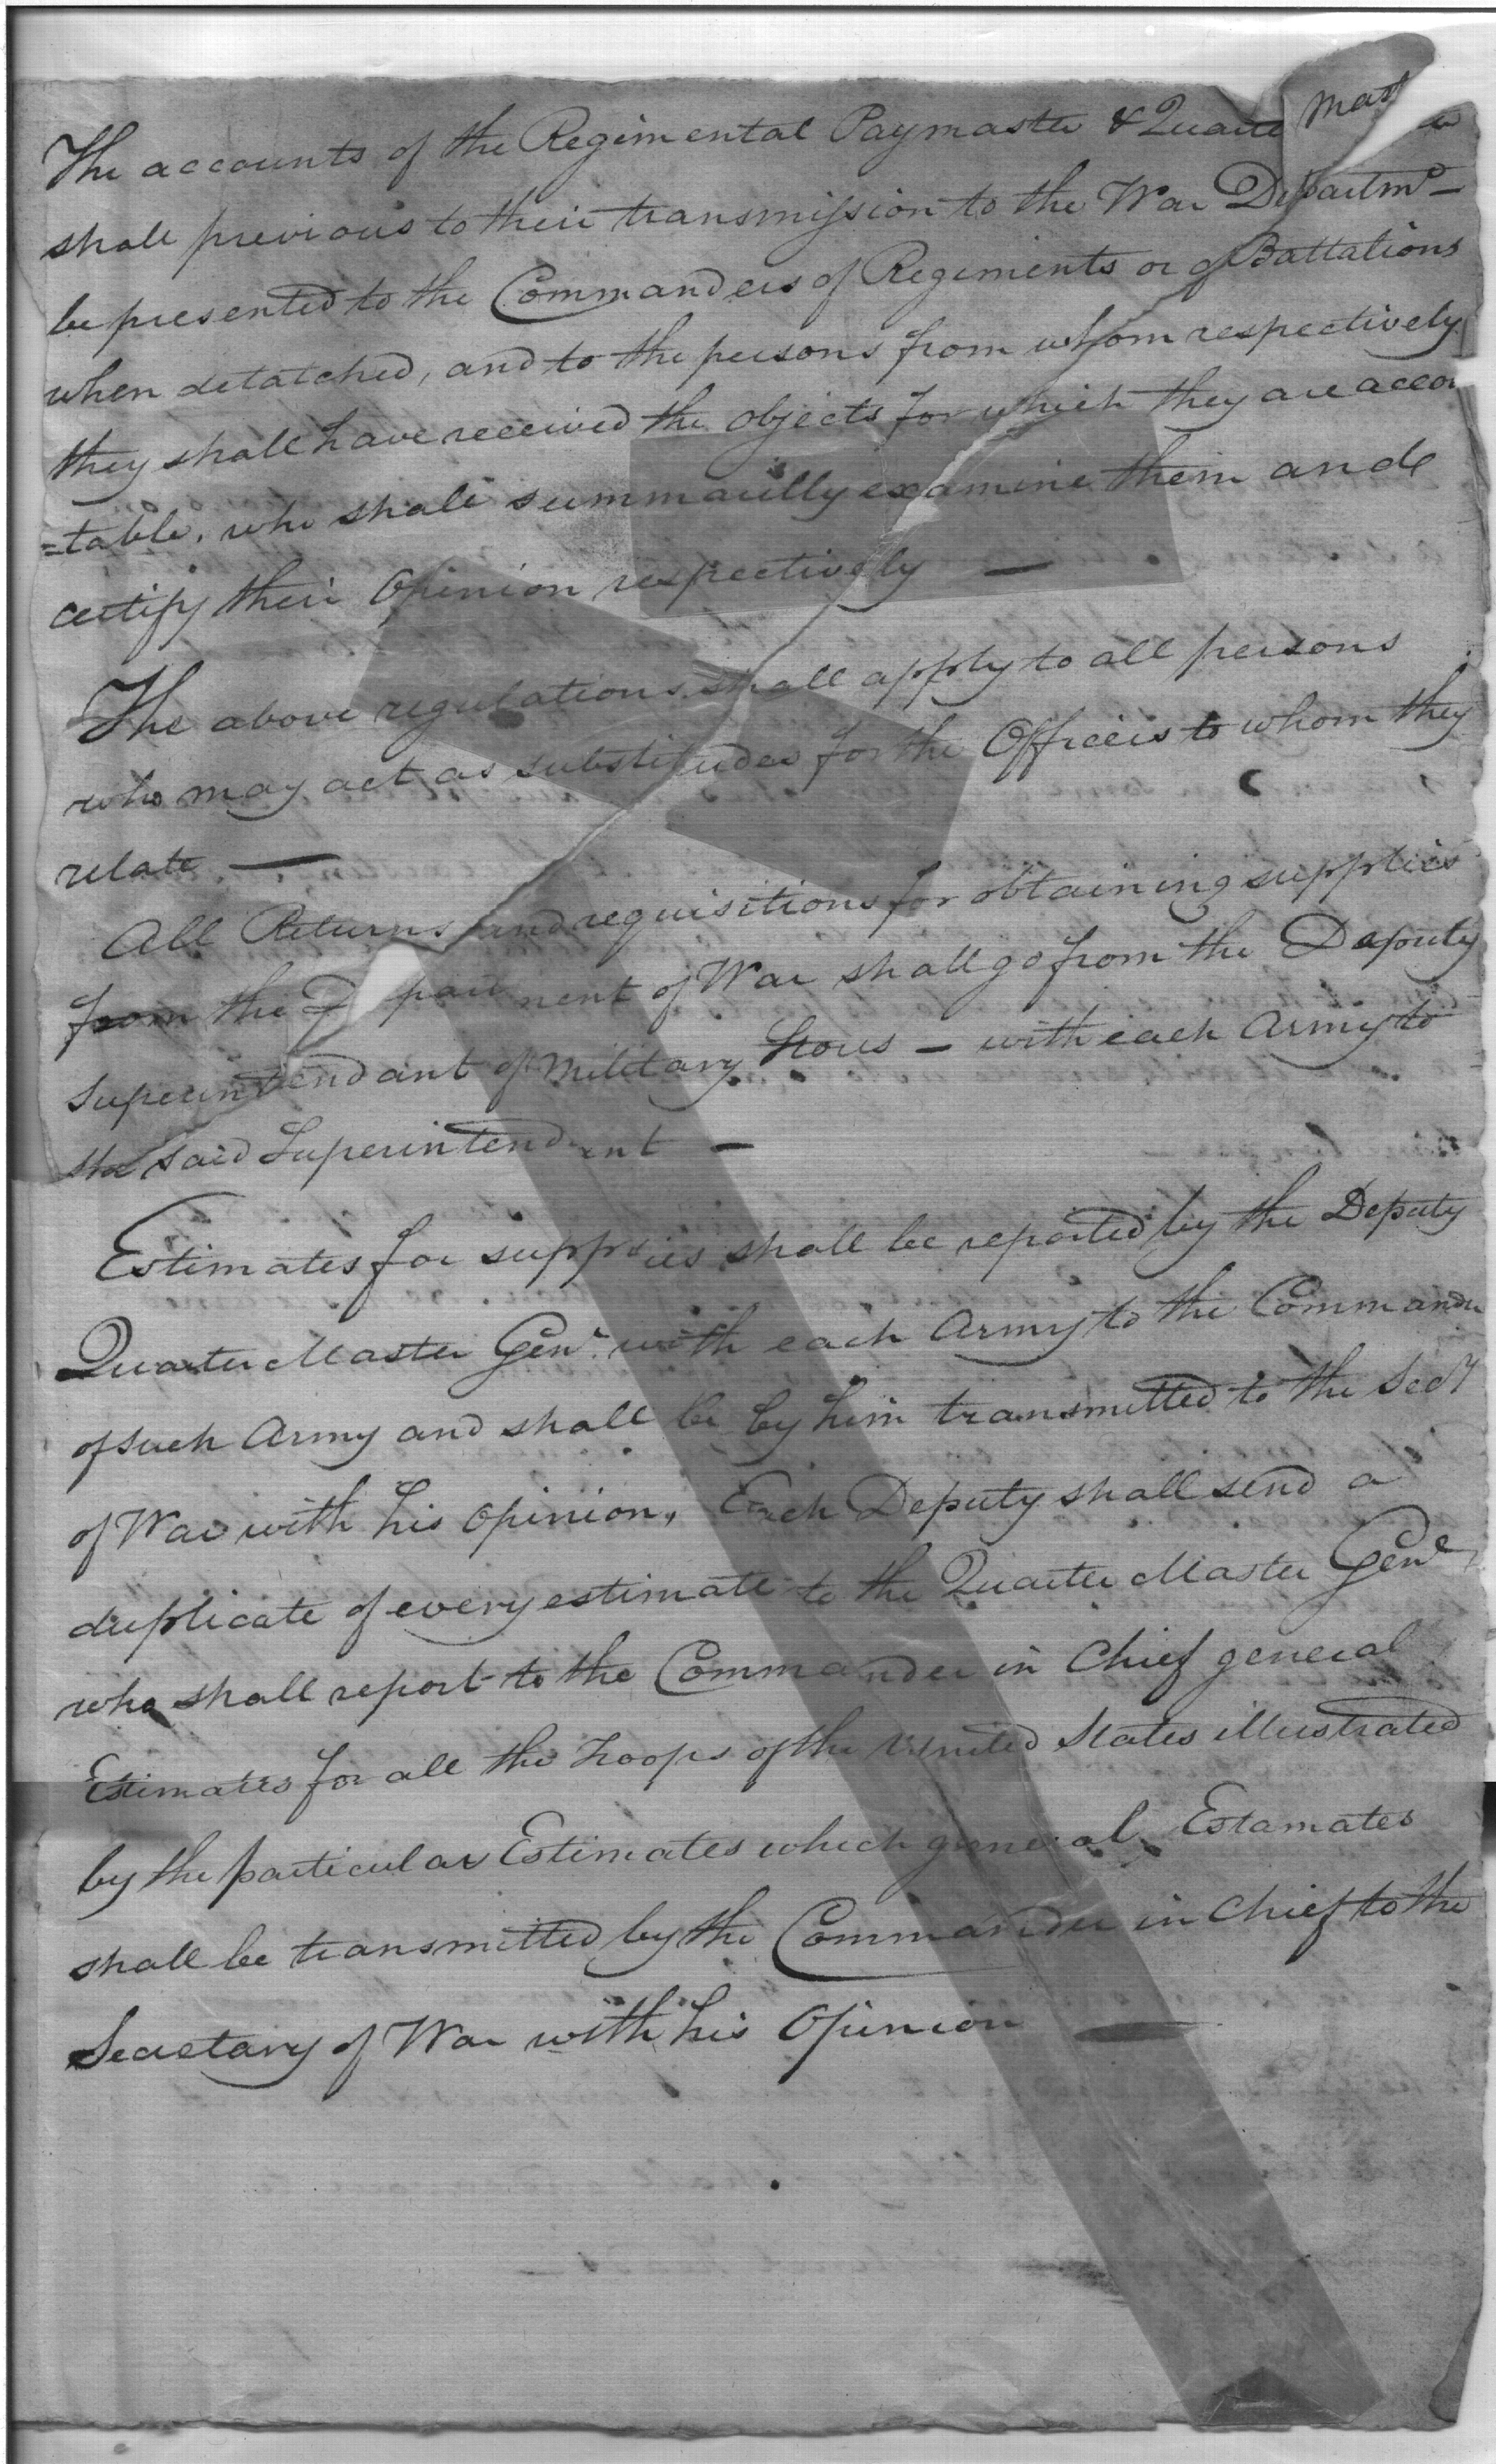 The accounts of the Regimental Paymaster & Quarter Master
shall previous to their transmission to the War Departmt –
be presented to the Commanders of Regiments or of Battalions
when detatched, and to the persons from whom respectively
they shall have received the objects for which they are accoun
=table, who shall summarilly examine them and
certify their Opinion respectively —
The above regulations shall apply to all persons
who may act as substitudes for the Officers to whom they
relate —
All Returns and requisitions for obtaining supplies
from the Department of War shall go from the Deputy
Superintendant of Military Stores – with each Army to
the said Superintendent –
Estimates for supplies shall be reported by the Deputy
Quarter Master Genl. with each Army to the Commander
of such Army and shall be by him transmitted to the Secy
of War with his opinion, Each Deputy shall send a
duplicate of every estimate to the Quarter Master Genl
who shall report to the Commander in Chief general
Estimates for all the troops of the United States illustrated
by the particular Estimates which general Estamates
shall be transmitted by the Commander in Chief to the
Secretary of War with his Opinion —